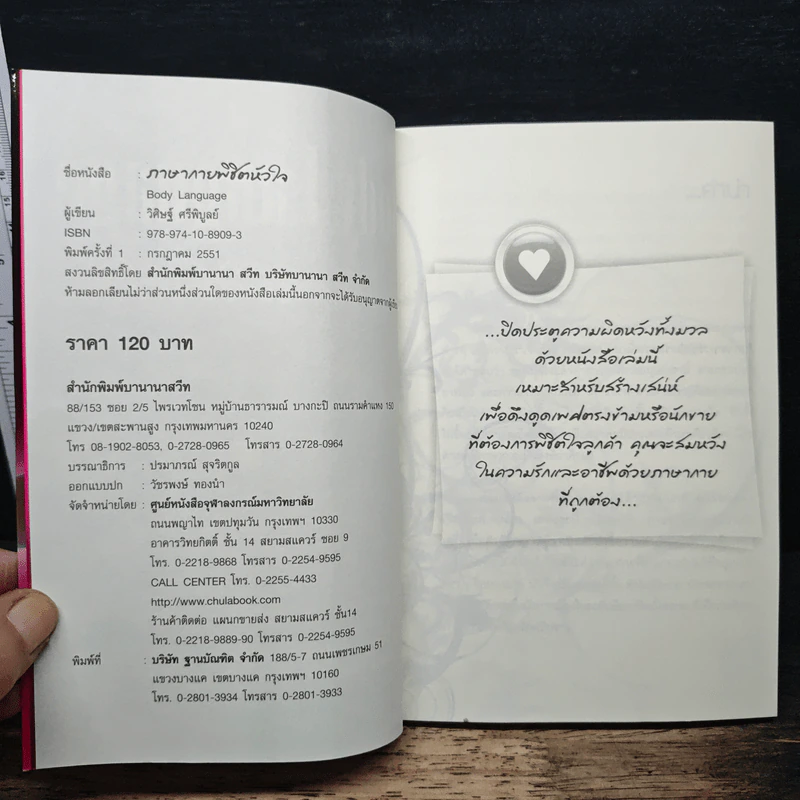 ชื่อหนังสือ : ภาษากายพิชิตหัวใจ
Body Language
ผู้เขียน : วิศิษฐ์ ศรีพิบูลย์
ISBN : 978-974-10-8909-3
พิมพ์ครั้งที่ 1 : กรกฎาคม 2551
สงวนลิขสิทธิ์โดย สำนักพิมพ์บานานา สวีท บริษัทบานานา สวีท จำกัด
ห้ามลอกเลียนไม่ว่าส่วนหนึ่งส่วนใดของหนังสือเล่มนี้นอกจากจะได้รับอนุญาต
ราคา 120 บาท
สำนักพิมพ์บานานาสวีท
88/153 ซอย 2/5 ไพรเวทโซน หมู่บ้านธารารมณ์ บางกะปิ ถนนรามคำแหง 150
แขวง/เขตสะพานสูง กรุงเทพมหานคร 10240
โทร 08-1902-8053, 0-2728-0965 โทรสาร 0-2728-0964
บรรณาธิการ : ปรมาภรณ์ สุจริตกูล
ออกแบบปก : วัชรพงษ์ ทองนำ
จัดจำหน่ายโดย : ศูนย์หนังสือจุฬาลงกรณ์มหาวิทยาลัย
ถนนพญาไท เขตปทุมวัน กรุงเทพฯ 10330
อาคารวิทยกิตติ์ ชั้น 14 สยามสแควร์ ซอย 9
โทร. 0-2218-9868 โทรสาร 0-2254-9595
CALL CENTER โทร. 0-2255-4433
http://www.chulabook.com
ร้านค้าติดต่อ แผนกขายส่ง สยามสแควร์ ชั้น14
โทร. 0-2218-9889-90 โทรสาร 0-2254-9595
พิมพ์ที่ : บริษัท ฐานบัณฑิต จำกัด 188/5-7 ถนนเพชรเกษม 51
แขวงบางแค เขตบางแค กรุงเทพฯ 10160
โทร. 0-2801-3934 โทรสาร 0-2801-3933
...ปิดประตูความผิดหวังทั้งมวล
ด้วยหนังสือเล่มนี้
เหมาะสำหรับสร้างเสน่ห์
เพื่อดึงดูดเพศตรงข้ามหรือนักขาย
ที่ต้องการพิชิตใจลูกค้า คุณจะสมหวัง
ในความรักและอาชีพด้วยภาษากาย
ที่ถูกต้อง...